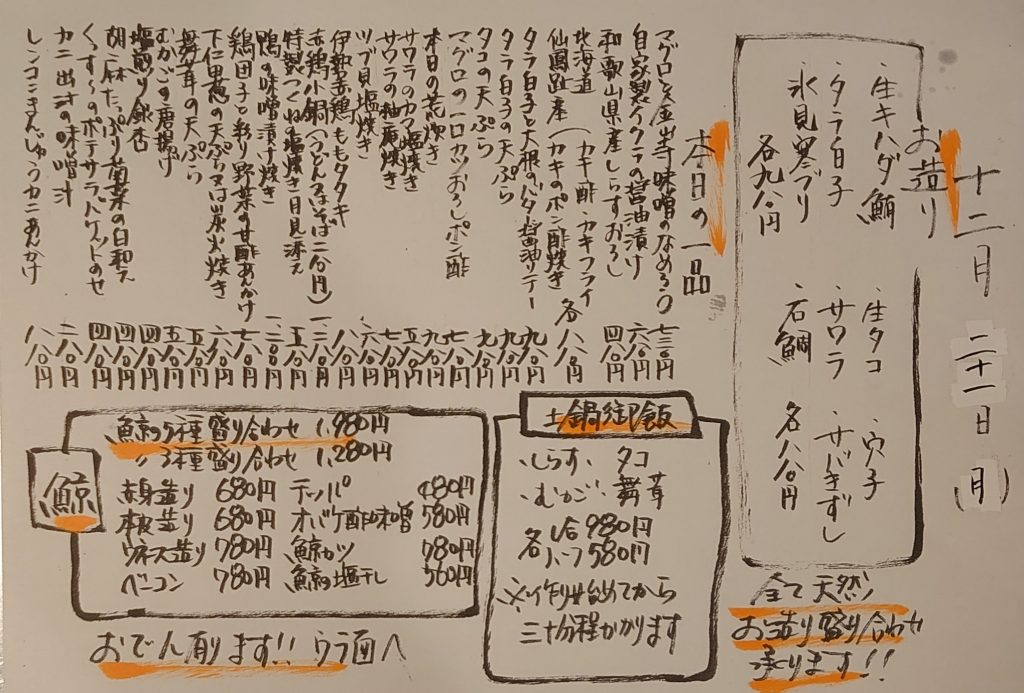 十二月 二十一日(月)
お造り
生キハダ鮪
タラ白子
氷見寒ブリ
各九八〇円
生タコ
サワラ
石鯛
穴子
サバきずし
各八八〇円
全て天然
お造り盛り合わせ
承ります!!
本日の一品
マグロと金山寺味噌のなめろう 七三〇円
自家製イクラの醤油漬け 六八〇円
和歌山県産しらすおろし 四八〇円
北海道
仙鳳趾産(カキ酢・カキフライ
カキのポン酢焼き 各八八〇円
タラ白子と大根のバター醤油ソテー 九八〇円
タラ白子の天ぷら 九八〇円
タコの天ぷら 九八〇円
マグロの一口カツおろしポン酢 七八〇円
本日の荒炊き 九八〇円
サワラのカマ塩焼き 五八〇円
サワラの柚庵焼き 七八〇円
ツブ貝塩焼き 六八〇円
伊勢赤鶏ももタタキ 八八〇円
赤鶏小鍋(うどん又はそば二八〇円) 一、二八〇円
特製つくねの塩焼き月見添え 五八〇円
鴨の味噌漬け焼き 一、二〇〇円
鶏団子と彩り野菜の甘酢あんかけ 七八〇円
下仁田葱の天ぷら又は炭火焼き 六八〇円
舞茸の天ぷら 五八〇円
むかごの唐揚げ 五八〇円
塩煎り銀杏 四八〇円
胡麻たっぷり菊菜の白和え 四八〇円
くっすーのポテサラバケットのせ 四八〇円
カニ出汁の味噌汁 二八〇円
レンコンまんじゅうカニあんかけ 八八〇円
土鍋御飯
・しらす・タコ
・むかご・舞茸
各 1合 980円
ハーフ 580円
※作り始めてから
三十分程かかります
鯨
鯨の5種盛り合わせ 1,980円
〃 3種盛り合わせ 1,280円
赤身造り 680円
本皮造り 680円
ウネス造り 780円
ベーコン 780円
テッパ 480円
オバケ酢味噌 580円
鯨カツ 780円
鯨の塩干し 560円
おでん有ります!! ウラ面へ